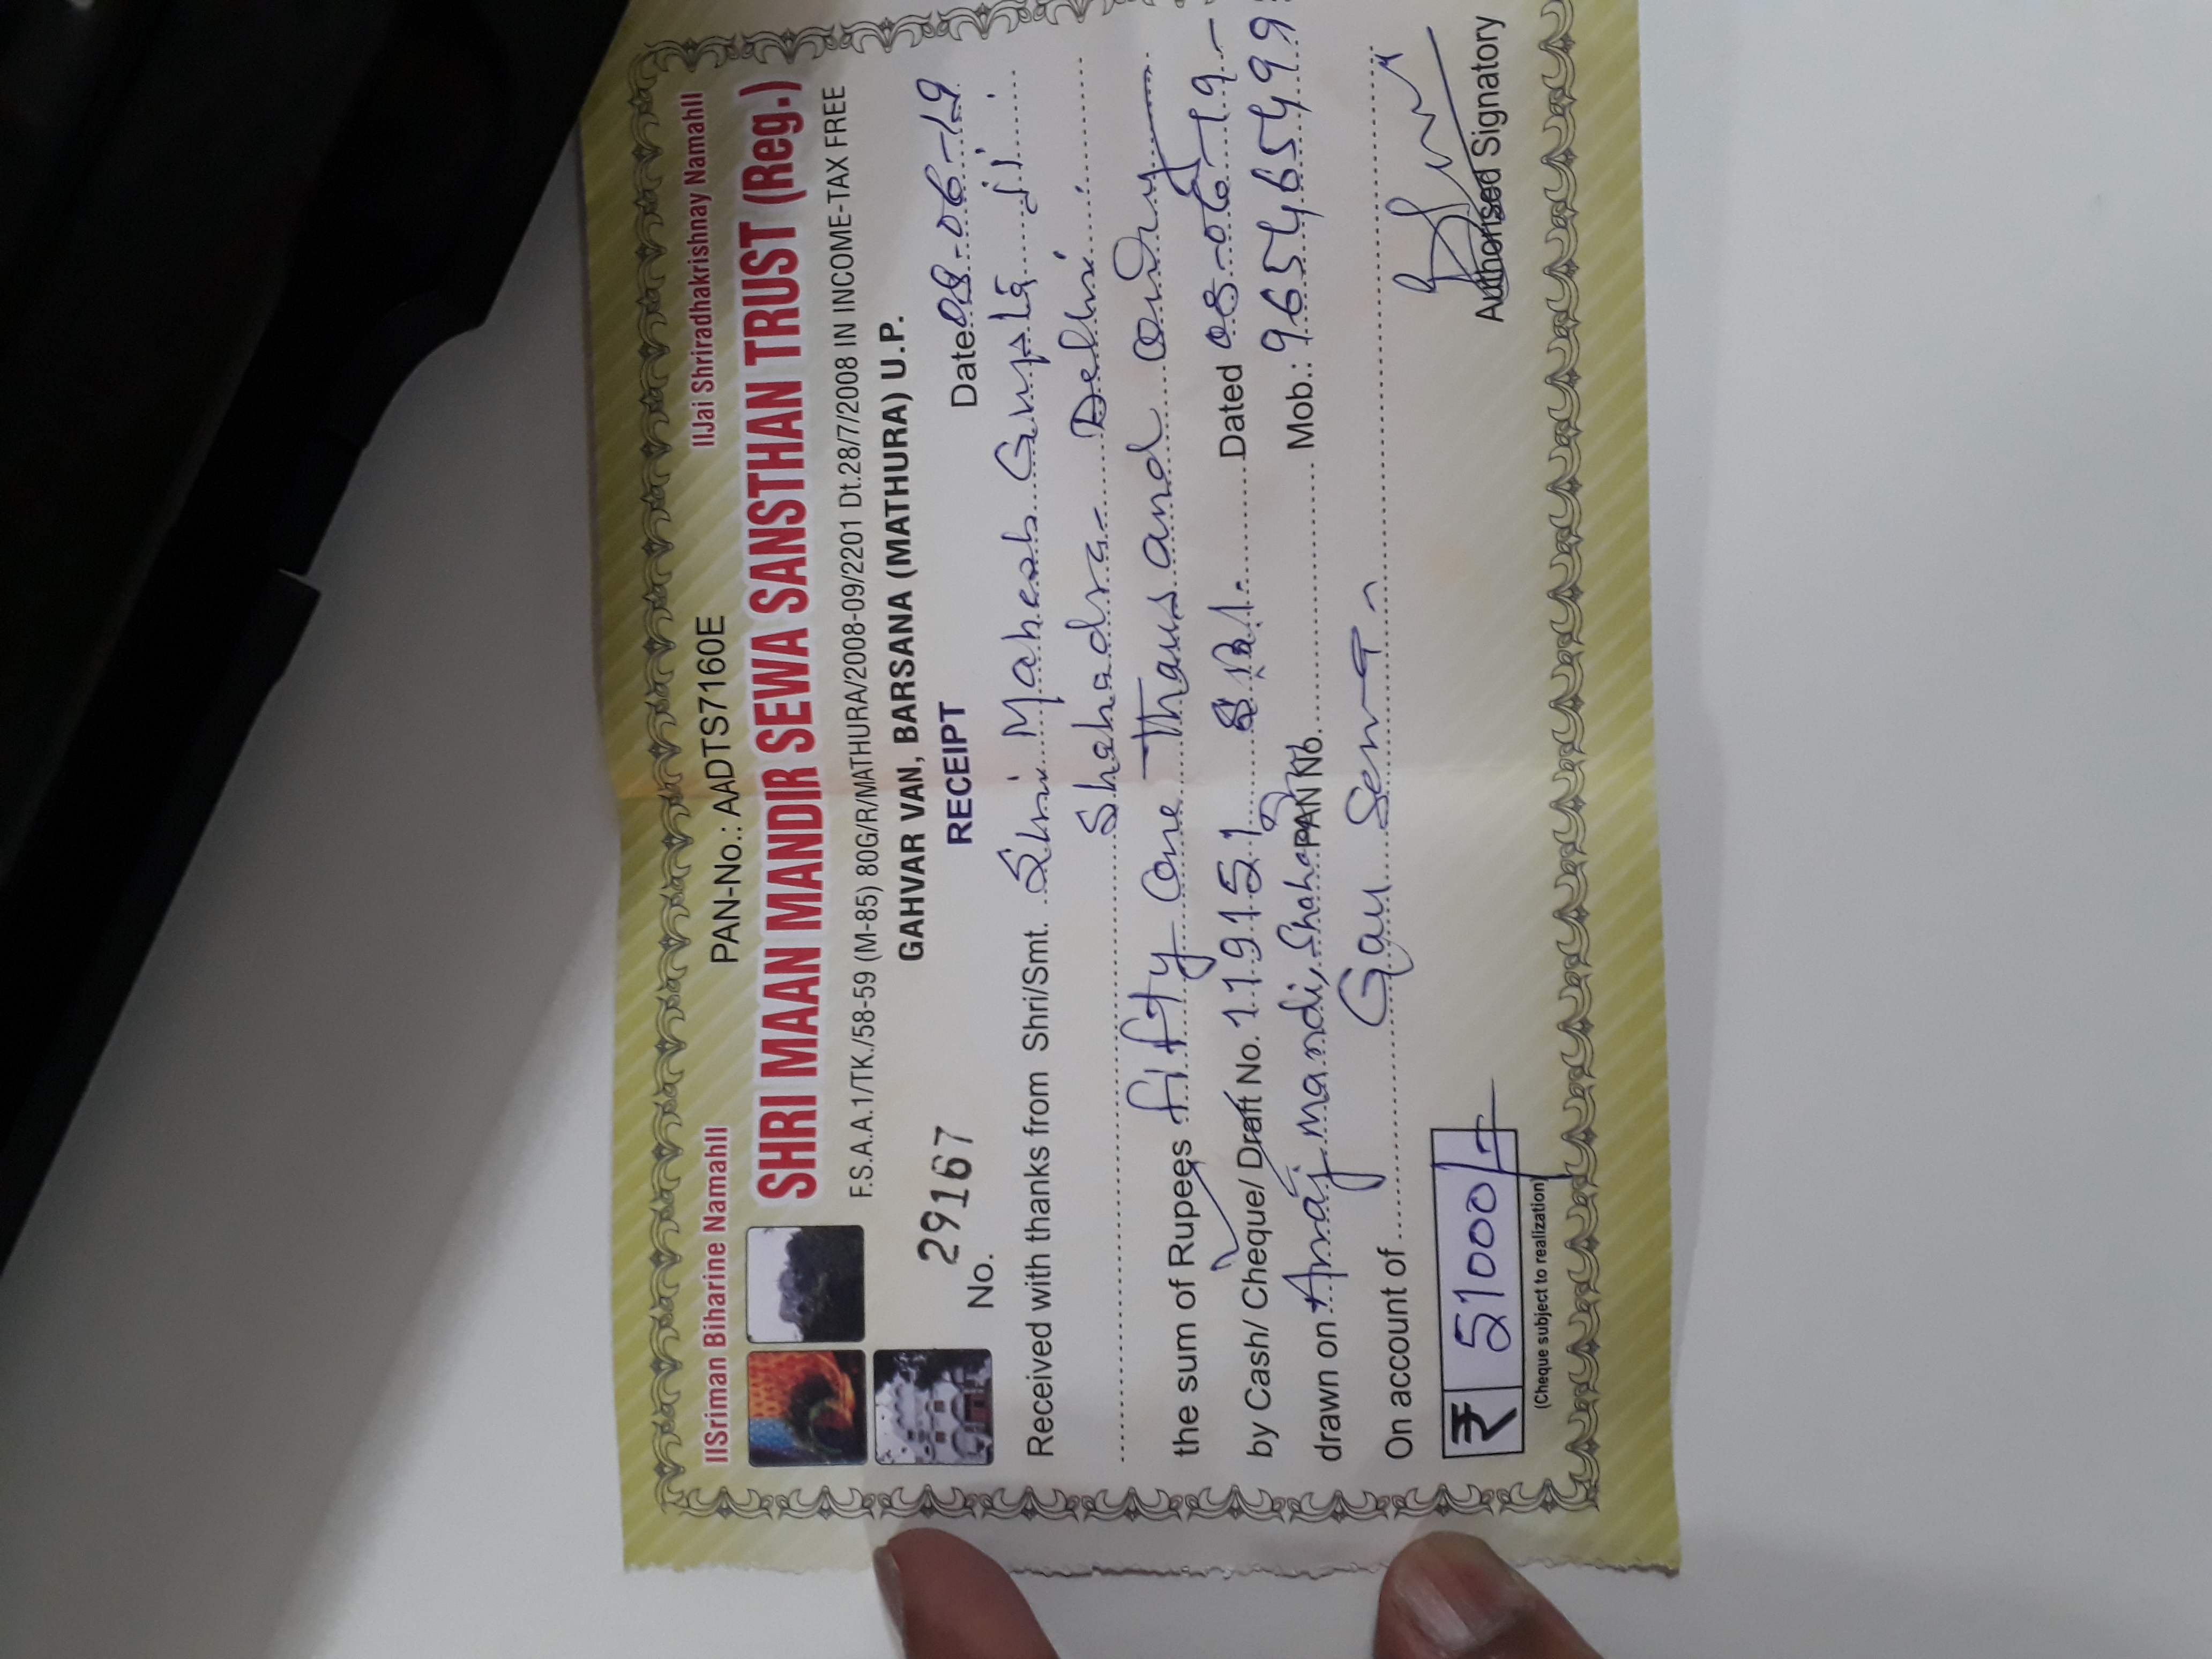 llSriman Biharine Namahll PAN-No.: AADTS7160E llJai Shriradhakrishnay Namahll
SHRI MAAN MANDIR SEWA SANSTHAN TRUST (Reg.)
F.S.A.A.1/TK./58-59 (M-85) 80G/R/MATHURA/2008-09/2201 Dt.28/7/2008 IN INCOME-TAX FREE
GAHVAR VAN, BARSANA (MATHURA) U.P.
No. 29167 RECEIPT Date 08-06-19
Received with thanks from Shri/Smt. Shri Mahesh Gupta ji
Shahadra- Delhi
the sum of Rupees fifty one Thousand only
by Cash/ Cheque/ Draft No. 119151 S.B.I. Dated 08-06-19-
drawn on Anaj mandi, PAN No. Mob.: 9654654999
On account of Gau Sewa
₹ 51000/-
Authorised Signatory
(Cheque subject to realization)